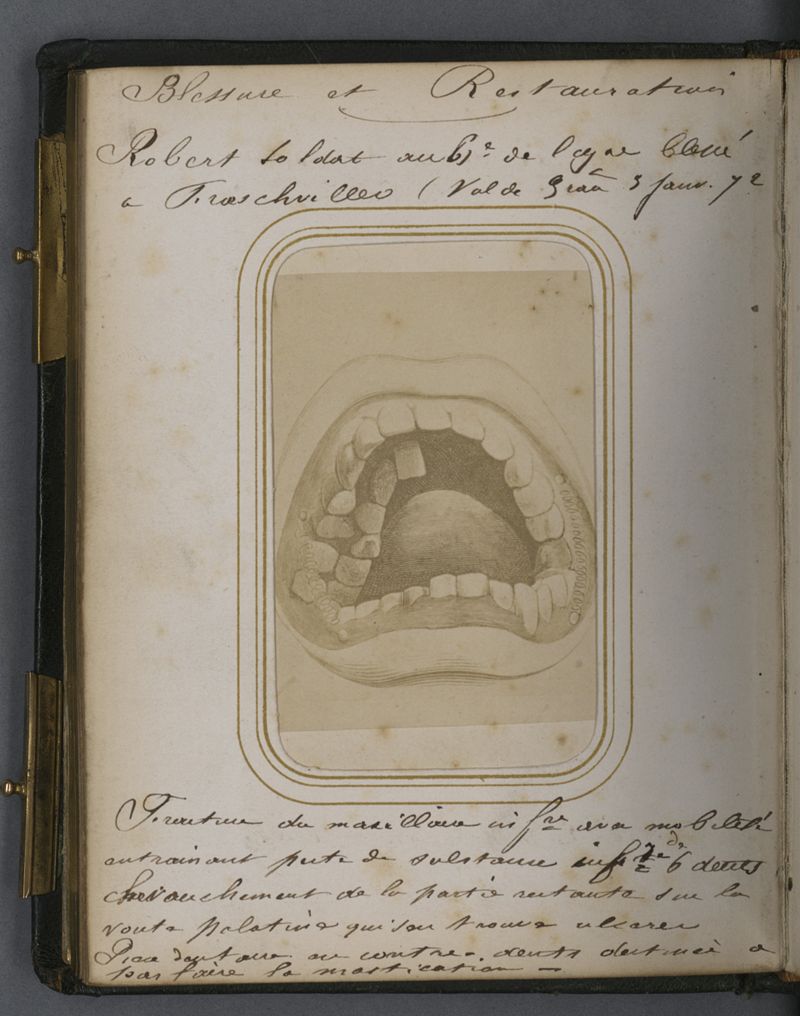 Blessure et Restauration
Robert soldat au 61e de ligne blessé
a Frœschviller (Val de Grâce 3 Janv. 72
Fracture du maxillaire infre avec mobilité
entrainant perte de substance 6 dents
chevauchement de la partie restante sur la
voute palatine qui s'en trouve ulcerée
Piece dentaire ou contre-dents destinée a
parfaire la mastication —